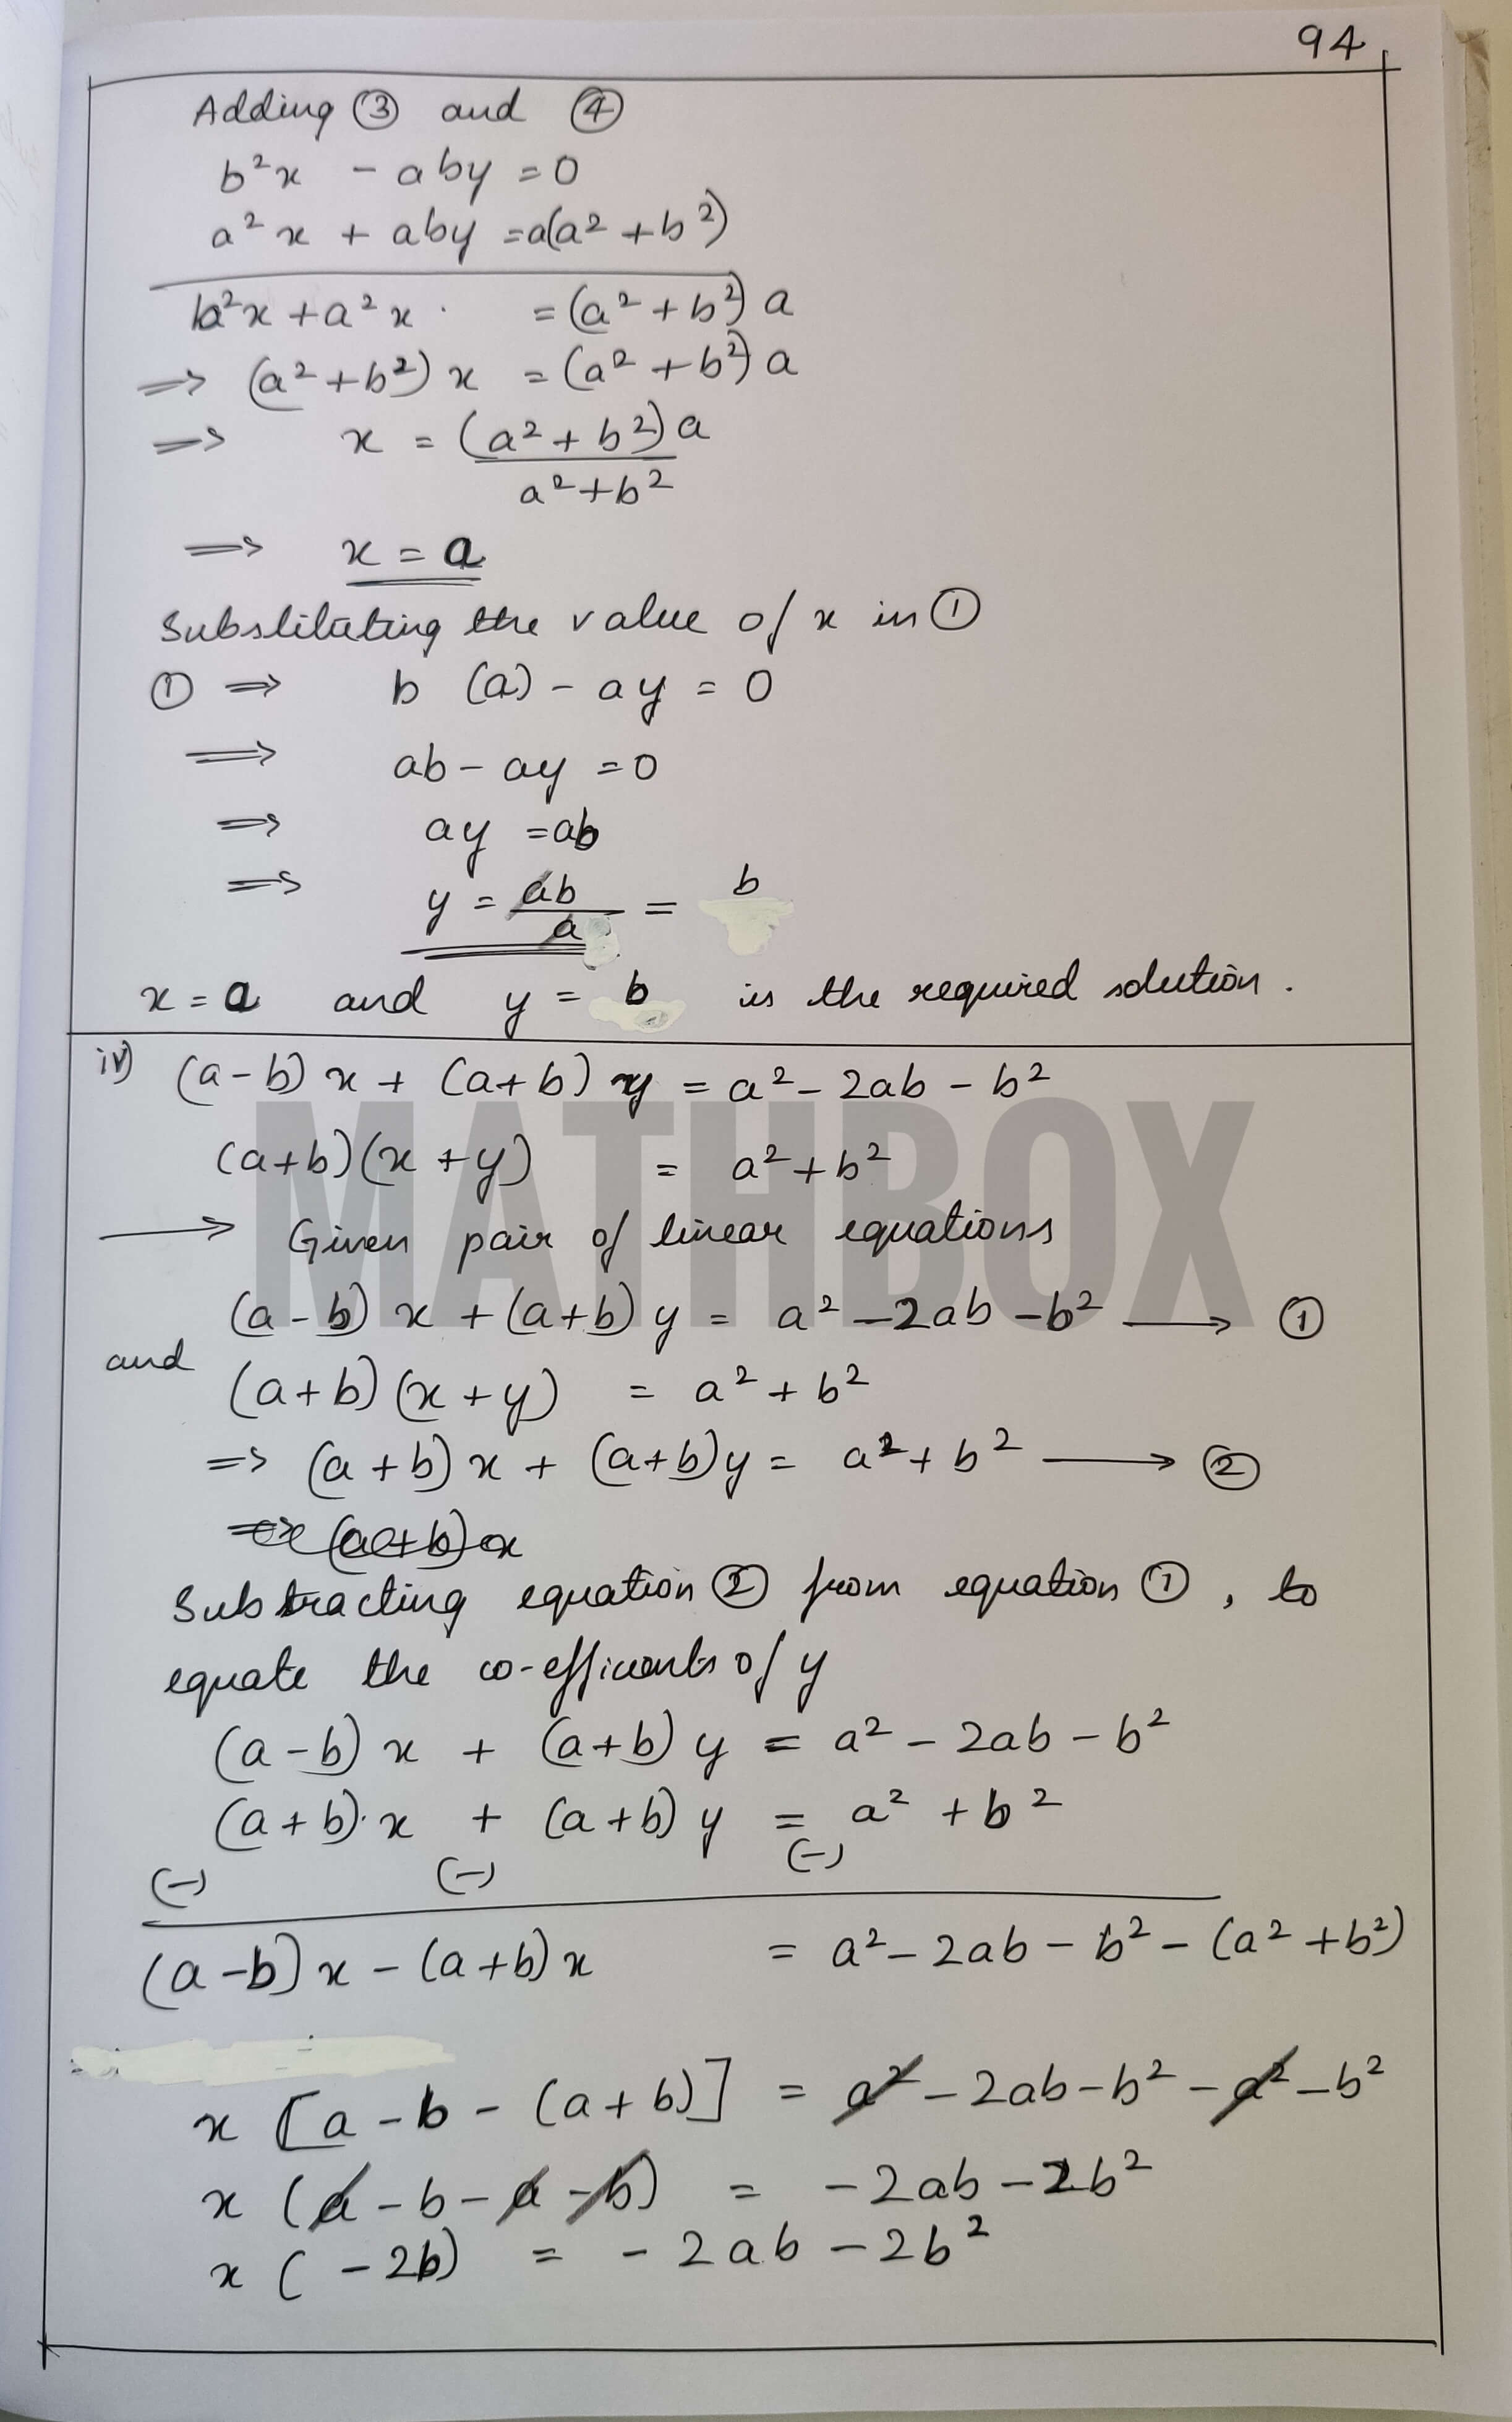 94
Adding ③ and ④
b²x - aby = 0
a²x + aby = a(a² + b²)
b²x + a²x . = (a² + b²) a
⇒ (a² + b²) x = (a² + b²) a
⇒ x = (a² + b²) a
a² + b²
⇒ x = a
Substituting the value of x in ①
① ⇒ b (a) - ay = 0
⇒ ab - ay = 0
⇒ ay = ab
⇒ y = ab/a = b
x = a and y = b is the required solution.
iv) (a-b) x + (a+b) y = a² - 2ab - b²
(a+b)(x+y) = a² + b²
MATHBOX
→ Given pair of linear equations
(a-b) x + (a+b) y = a² - 2ab - b² → ①
and
(a+b) (x+y) = a² + b²
⇒ (a+b) x + (a+b) y = a² + b² → ②
⇒ (a+b) x
Subtracting equation ② from equation ①, to
equate the co-efficients of y
(a-b) x + (a+b) y = a² - 2ab - b²
(a+b) x + (a+b) y = a² + b²
(-) (-) (-)
(a-b) x - (a+b) x = a² - 2ab - b² - (a² + b²)
x [a - b - (a+b)] = a² - 2ab - b² - a² - b²
x (a - b - a - b) = - 2ab - 2b²
x (- 2b) = - 2ab - 2b²